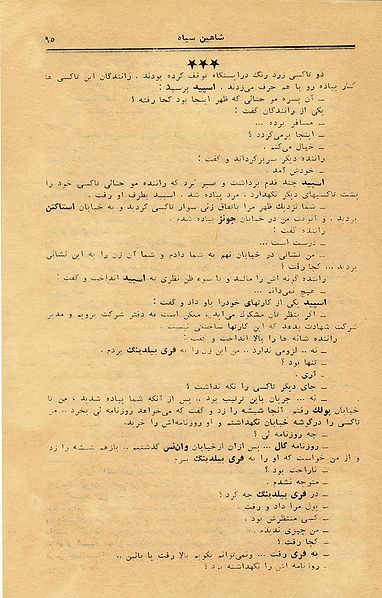 شاهین سیاه
۹۵
★★★
دو تاکسی زرد رنگ درایستگاه توقف کرده بودند . رانندگان این تاکسی ها
کنار پیاده رو با هم حرف می‌زدند . اسپید پرسید :
ــ آن پسره مو حنائی که ظهر اینجا بود کجا رفته ؟
یکی از رانندگان گفت :
ــ مسافر برده ...
ــ اینجا برمی‌گردد ؟
ــ خیال می‌کنم .
راننده دیگر سربرگرداند و گفت :
ــ خودش آمد .
اسپید چند قدم برداشت و صبر کرد که راننده مو حنائی تاکسی خود را
پشت تاکسیهای دیگر نگهدارد . مرد پیاده شد . اسپید بطرف او رفت .
ــ شما نزدیک ظهر مرا باتفاق زنی سوار تاکسی کردید و به خیابان استاکتن
بردید . و آنوقت من در خیابان جونز پیاده شدم .
راننده گفت :
ــ درست است ...
ــ من نشانی در خیابان نهم به شما دادم و شما آن زن را به این نشانی
نبردید ... کجا رفت ؟
راننده گونه اش را مالید و با سوء ظن نظری به اسپید انداخت و گفت :
ــ هیچ نمی‌دانم ...
اسپید یکی از کارتهای خودرا باو داد و گفت :
ــ اگر بنظر تان مشکوک می‌آید ، ممکن است به دفتر شرکت برویم و مدیر
شرکت شهادت بدهد که این کارتها ساختگی نیست .
راننده شانه ها را بالا انداخت و گفت :
ــ نه .. لزومی ندارد .. من این زن را به فری بیلدینگ بردم .
ــ تنها بود ؟
ــ آری .
ــ جای دیگر تاکسی را نگه نداشت ؟
ــ نه ... جریان باین ترتیب بود .. پس از آنکه شما پیاده شدید ، من تا
خیابان پولک رفتم آنجا شیشه را زد و گفت که می‌خواهد روزنامه ئی بخرد .. من
تاکسی را درگوشه خیابان نگهداشتم و او روزنامه‌اش را خرید.
ــ چه روزنامه ئی ؟
ــ روزنامه کال ... پس ازآن ازخیابان وان‌نس گذشتیم .. بازهم شیشه را زد
و از من خواست که او را به فری بیلدینگ ببرم .
ــ ناراحت بود ؟
ــ متوجه نشدم .
ــ در فری بیلدینگ چه کرد ؟
ــ پول مرا داد و رفت .
ــ کسی منتظرش بود .
ــ من چیزی ندیدم .
ــ کجا رفت ؟
ــ به فری رفت ... ونمی‌توانم بگویم بالا رفت یا پائین ..
ــ روزنامه اش را نگهداشته بود ؟